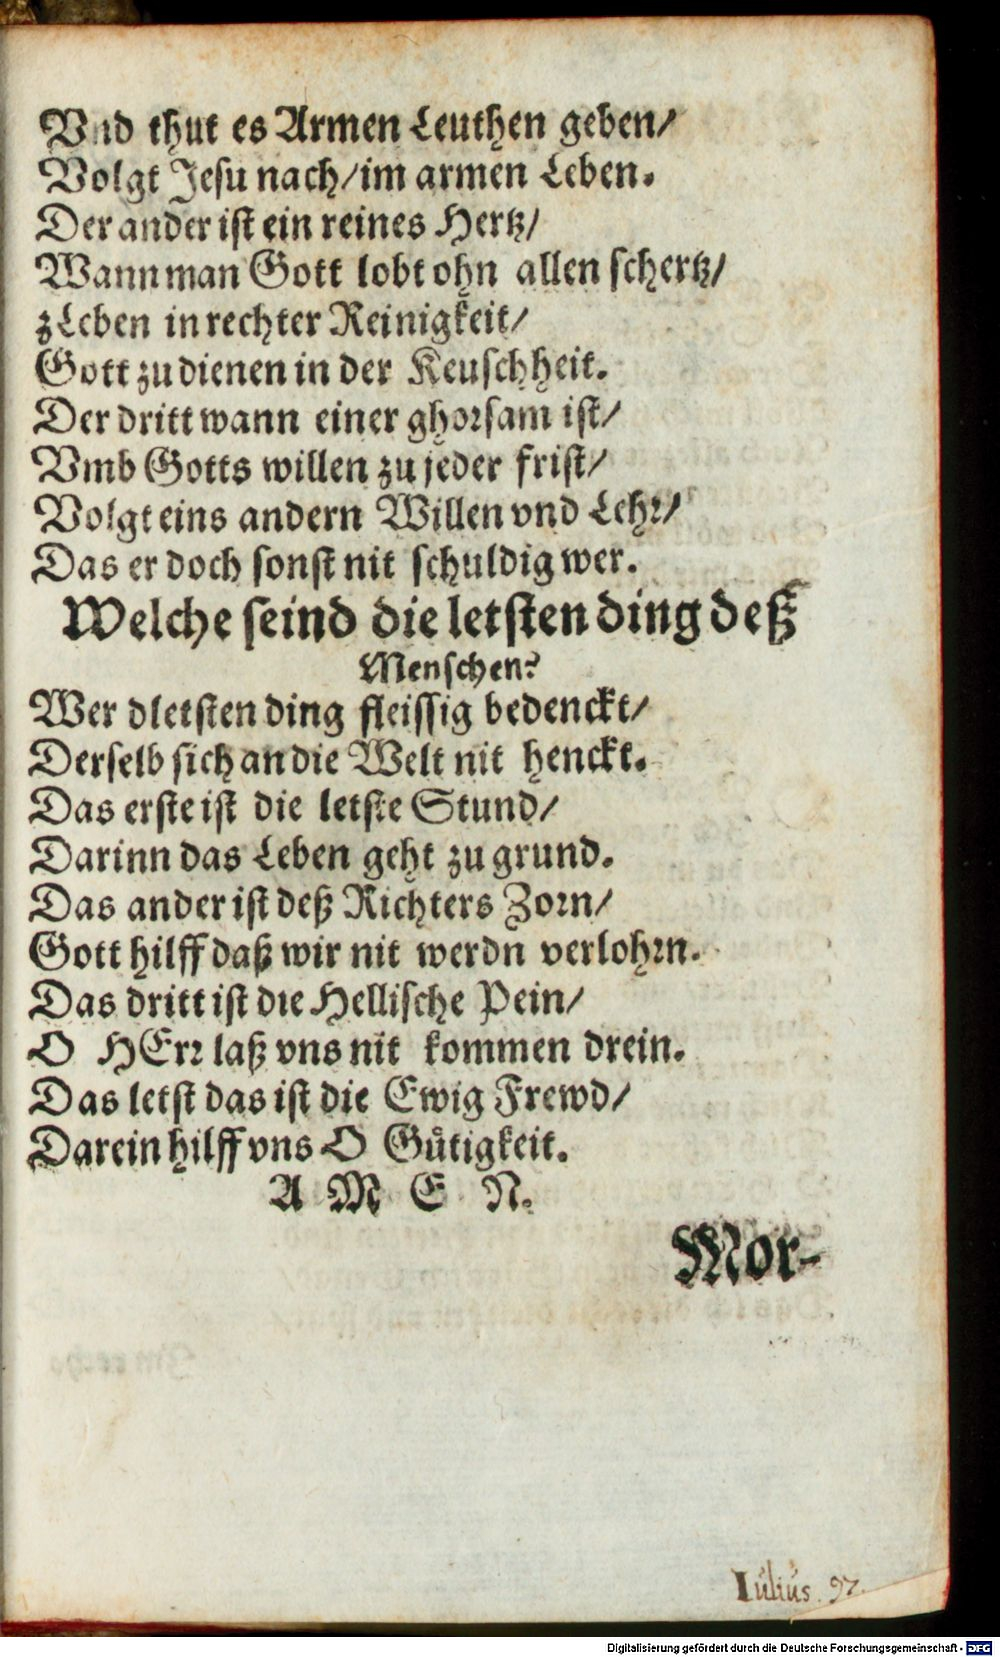 Vnd thut es Armen Leuthen geben/
Volgt Jesu nach/im armen Leben.
Der ander ist ein reines Hertz/
Wann man Gott lobt ohn allen schertz/
zLeben in rechter Reinigkeit/
Gott zu dienen in der Keuschheit.
Der dritt wann einer ghorsam ist/
Vmb Gotts willen zu jeder frist/
Volgt eins andern Willen vnd Lehr/
Das er doch sonst nit schuldig wer.
Welche seind die letsten ding deß
Menschen?
Wer dletsten ding fleissig bedenckt/
Derselb sich an die Welt nit henckt.
Das erste ist die letste Stund/
Darinn das Leben geht zu grund.
Das ander ist deß Richters Zorn/
Gott hilff daß wir nit werdn verlohrn.
Das dritt ist die Hellische Pein/
O HErr laß vns nit kommen drein.
Das letst das ist die Ewig Frewd/
Darein hilff vns O Gütigkeit.
A M E N.
Mor-
Iulius. 97.
Digitalisierung gefördert durch die Deutsche Forschungsgemeinschaft - DFG